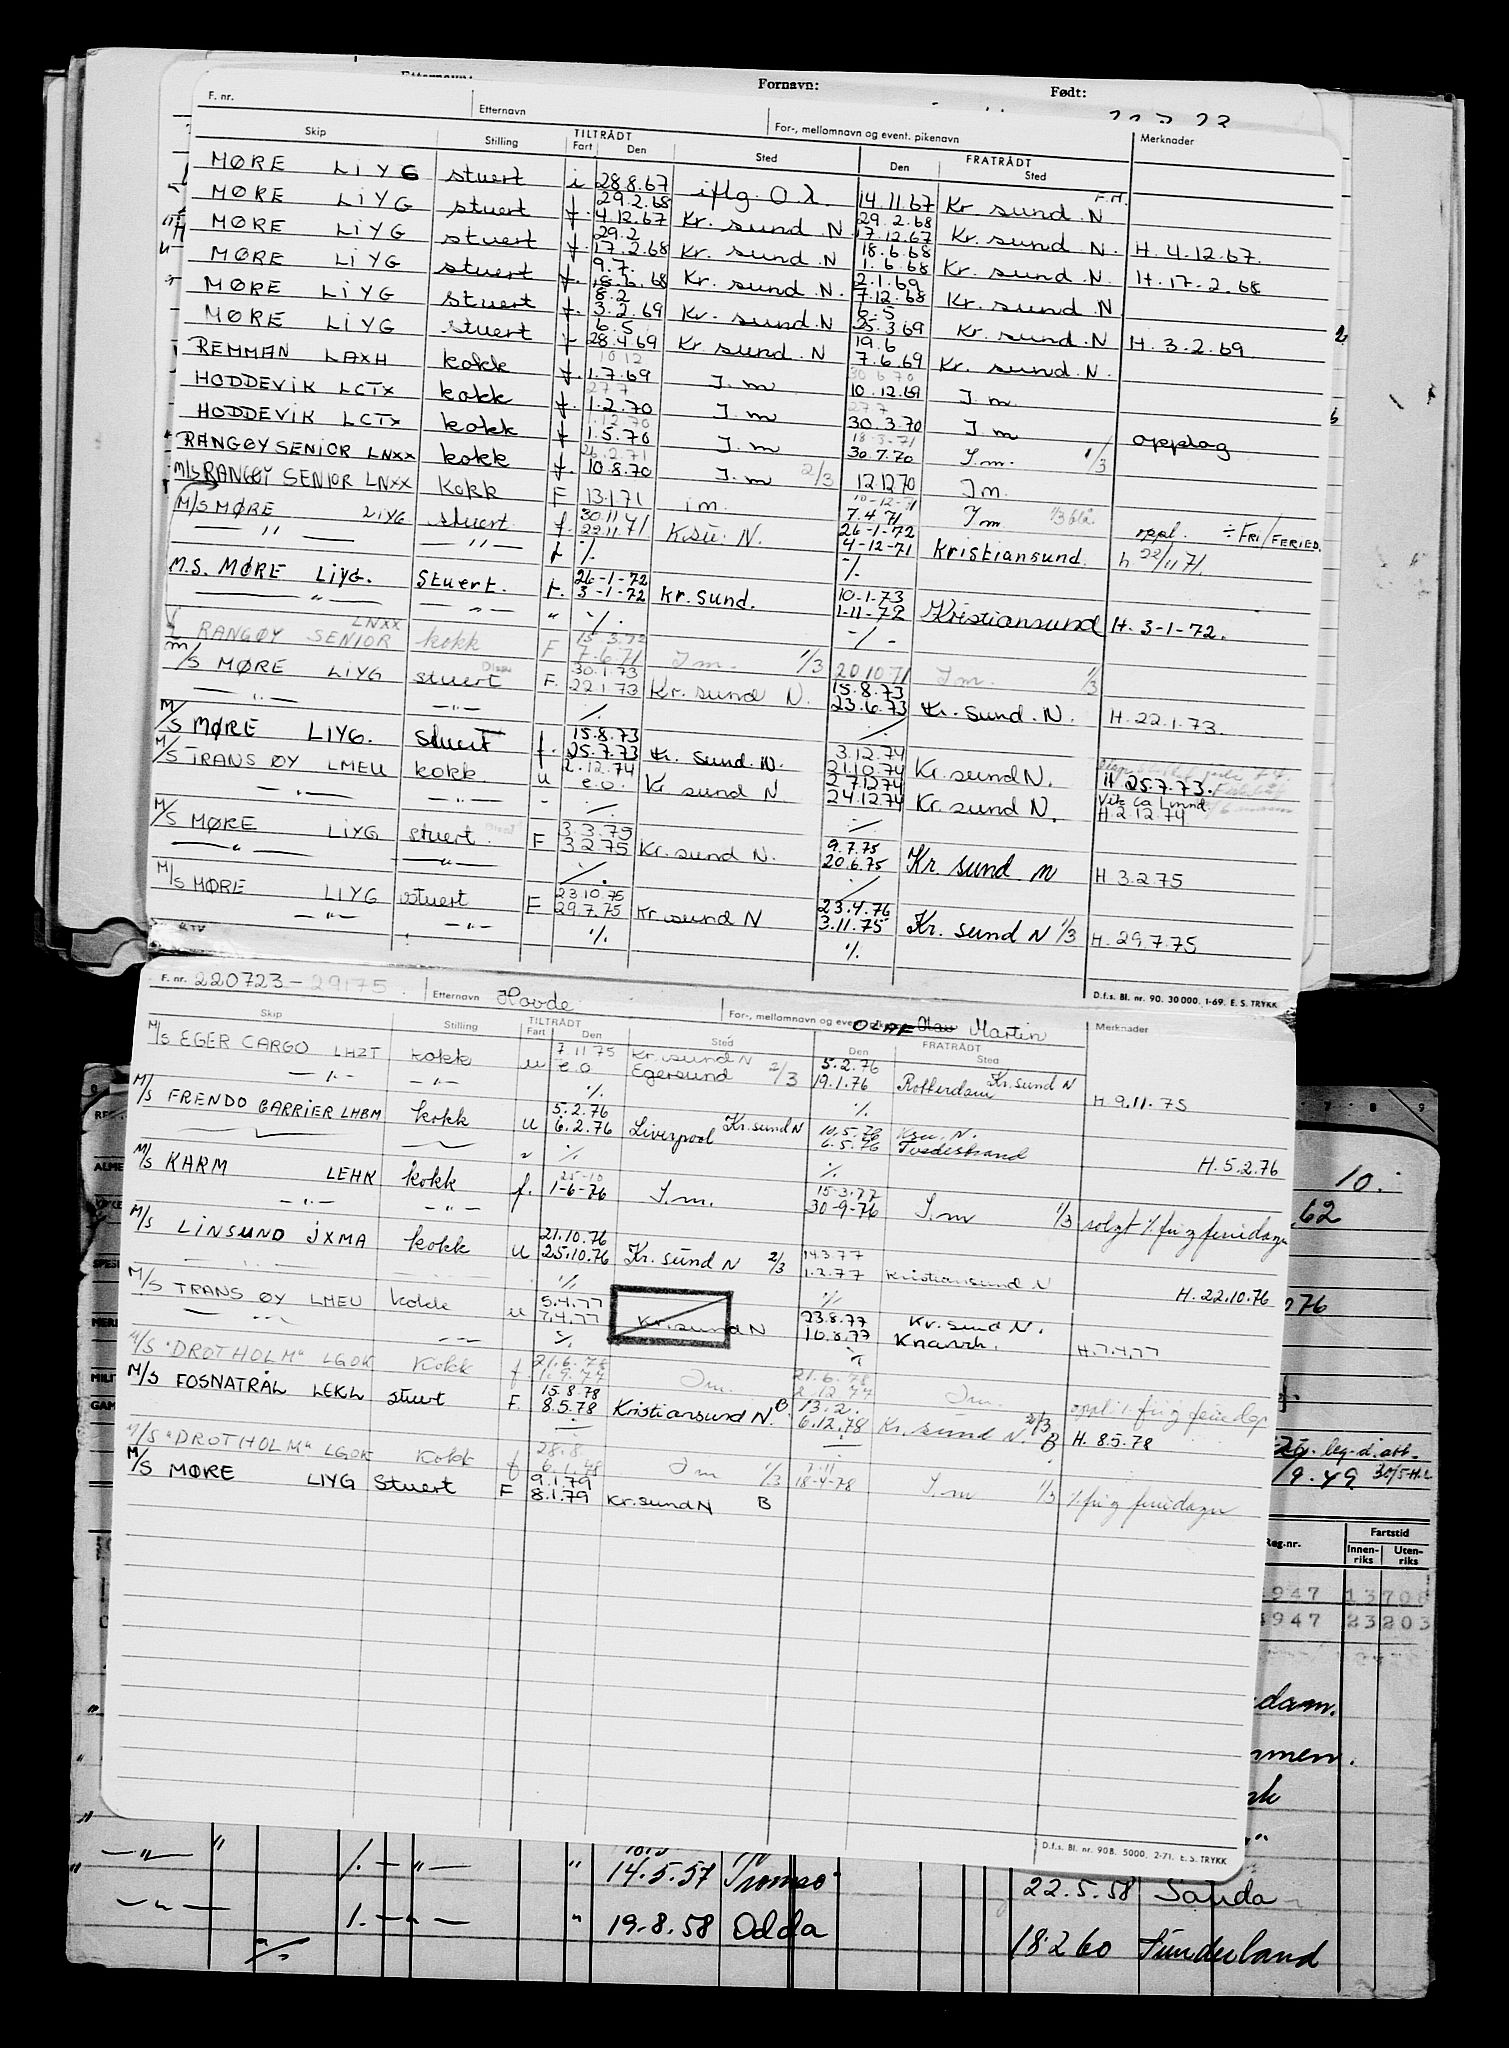 Fornavn: Født:
F. nr. Etternavn For-, mellomnavn og event. pikenavn
Skip Stilling TILTRÅDT Fart Den Sted FRATRÅDT Den Sted Merknader
MØRE LIYG stuert i 28.8.67 iflg. O.L. 14.11.67 Kr. sund. N
MØRE LIYG stuert f. 29.2.68 4.12.67 Kr. sund N 29.2.68 17.12.67 Kr. sund N. H. 4.12.67.
MØRE LIYG stuert f. 29.2 17.2.68 Kr. sund .N 18.6.68 1.6.68 Kr. sund .N. H. 17.2.68
MØRE LIYG stuert f. 9.7. 18.6.68 Kr. sund N. 2.1.69 7.12.68 Kr. sund N
MØRE LIYG stuert f. 8.2 3.2.69 Kr. sund N 6.5 25.3.69 Kr. sund N H. 3.2.69
MØRE LIYG stuert f 6.5 28.4.69 Kr. sund .N 19.6 7.6.69 Kr. sund .N.
REMMAN LAXH kokk f. 10 12 1.7.69 I.m 30 6 70 10.12.69 I.m
HODDEVIK LCTX kokk f. 27 7 1.2.70 I.m 27 7 30.3.70 I m opplag
HODDEVIK LCTX kokk f 1.12.70 1.5.70 I.m 18.3.71 30.7.70 I.m. 1/3
RANGØY SENIOR LNXX kokk f. 26.2.71 10.8.70 I.m 2/3 12 12 70 Im.
M/S RANGØY SENIOR LNXX Kokk F 13.1.71 im. 10-12-71 7.4.71 I m 1/3 blå. oppl. ÷ FRI/FERIED.
M/S MØRE LIYG stuert f. 30.11 22.11.71 K.su. N. 26-1-72 4-12-71 Kristiansund. h. 22/11 71.
— " — — " — f %. %.
M.S. MØRE LIYG. Stuert. f. 26-1-72 3-1-72 Kr. sund. 10-1-73 1-11-72 Kristiansund H. 3-1-72.
— " — — " — " %. -/-
RANGØY SENIOR LNXX kokk F 15.3.72 7.6.71 I m. 1/3 20 10 71 I m. 1/3
M/S MØRE LIYG stuert F. 30.1.73 22 1 73 Kr. sund N. 15.8.73 23.6.73 Kr. Sund. N. H. 22.1.73.
— " — — " — %. %
M/S MØRE LIYG. Stuert f. 15.8.73 25.7.73 Kr. Sund. N. 3.12.74 21.10.74 Kr. sund N. H 25.7.73.
M/S TRANS ØY LMEU kokk u 2.12.74 e.o. Kr sund N 27.12.74 24.12.74 Kr. sund N. H 2.12.74
— " — — " — - %. %
M/S MØRE LIYG stuert. F 3.3.75 3 2 75 Kr. sund N. 9.7.75 20.6.75 Kr sund N H 3.2.75
— " — — " — %. %
M/S MØRE LIYG stuert F 23.10.75 29.7.75 Kr. sund N 23.4.76 3.11.75 Kr. sund N 1/3 H. 29.7.75
— " — — " — %. %
D.f.s. Bl. nr. 90. 30 000. 1-69. E. S. TRYKK
F. nr. 220723-29175 Etternavn Hovde For-, mellomnavn og event. pikenavn OLAF Olav Martin
Skip Stilling TILTRÅDT Fart Den Sted FRATRÅDT Den Sted Merknader
M/S EGER CARGO LHZT kokk u 7.11 75 e.o Kr. sund N Egersund 2/3 5.2.76 19.1.76 Rotterdam Kr.sund N H 9.11.75
— " — — " — %. %.
M/S FRENDO CARRIER LHBM kokk u 5.2.76 6.2.76 Liverpool Kr.sund N 10.5.76 6.5.76 Ksu. N. Tvedestrand H. 5.2.76
" % %
M/S KARM LEHK kokk f. 25-10 1-6-76 I.m. 15.3.77 30-9-76 I.m 1/3 solgt % fri g feriedager
— " — — " —
M/S LINSUND JXMA kokk u 21.10.76 25.10.76 Kr. sund N 2/3 14.3.77 1.2.77 Kristiansund N H. 22.10.76
%. %.
M/S TRANS ØY LMEU kokk u 5.4.77 7.4.77 Kr.sund N 23.8.77 10.8.77 Kr. sund N. Knarvik. H. 7.4.77
— " — %. %
M/S "DROTHOLM" LGOK kokk f 21.6.78 1.9.77 I m. 21.6.78 2.12.77 I m oppl % fri g feriedag
M/S FOSNATRÅL LEKL stuert F. 15.8.78 8.5.78 Kristiansund N. B 13.2. 6.12.78 Kr. sund N. 2/3 B H. 8.5.78
M/S "DROTHOLM" LGOK Kokk f 28.8. I m 1/3 7.11 18-4-78 I.m 1/3 % fri g feriedager
M/S MØRE LIYG Stuert F 9.1.79 8.1.79 Kr.sund N B
D.f.s. Bl. nr. 90B. 5000, 2-71. E. S. TRYKK
7 8 9
10.
62
76
9.49
Reg.nr. Fartstid
Innen-riks Uten-riks
947 13706
947 23203
dam.
mmen.
— " — " 1. — " — " 14.5.57 Tromsø 22.5.58 Sauda
— " — 1. — " — " 19.8.58 Odda 18.2 60 Sunderland